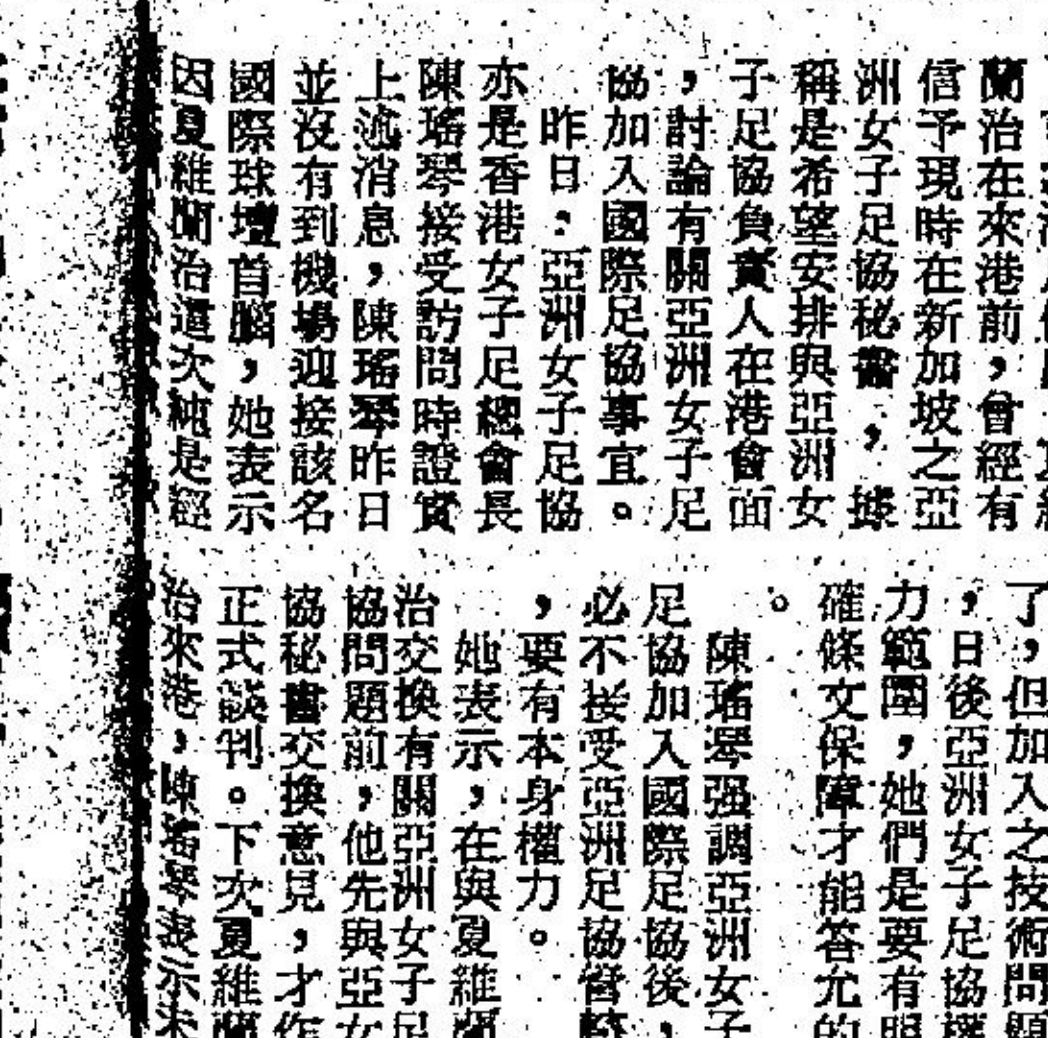 蘭治在來港前，曾經有
信予現時在新加坡之亞
洲女子足協秘書，據
稱是希望安排與亞洲女
子足協負責人在港會面
，討論有關亞洲女子足
協加入國際足協事宜。
昨日：亞洲女子足協
亦是香港女子足總會長
陳瑤琴接受訪問時證實
上述消息，陳瑤琴昨日
並沒有到機場迎接該名
國際球壇首腦，她表示
因夏維蘭治這次純是經
了，但加入之技術問題
，日後亞洲女子足協權
力範圍，她們是要有明
確條文保障才能答允的
。
陳瑤琴强調亞洲女子
足協加入國際足協後，
必不接受亞洲足協管轄
，要有本身權力。
她表示，在與夏維蘭
治交換有關亞洲女子足
協問題前，他先與亞女
協秘書交換意見，才作
正式談判。下次夏維蘭
治來港，陳瑤琴表示未